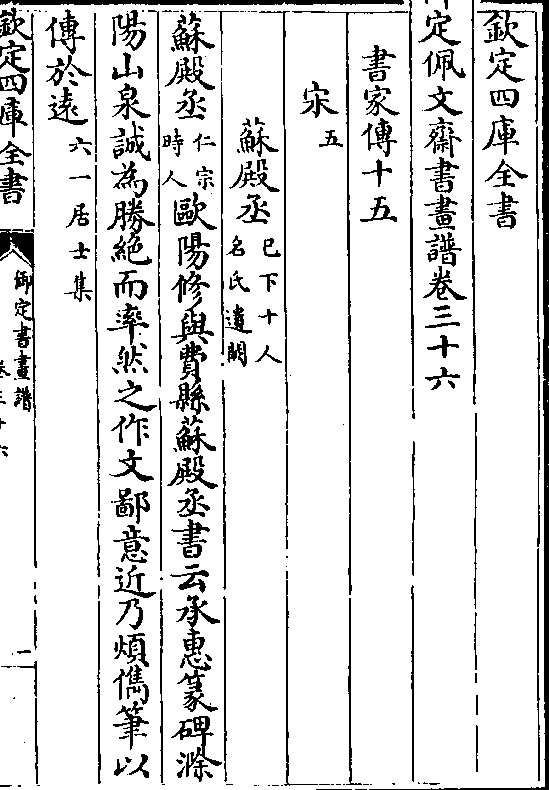 欽定四庫全書
御定佩文齋書畫譜卷三十六
書家傳十五
宋五
蘇殿丞已下十人名氏遺闕
蘇殿丞仁宗時人歐陽修與費縣蘇殿丞書云承惠篆碑滁
陽山泉誠為勝絕而率然之作文鄙意近乃煩儁筆以
傳於遠六一居士集
欽定四庫全書
御定書畫譜
卷三十六
二